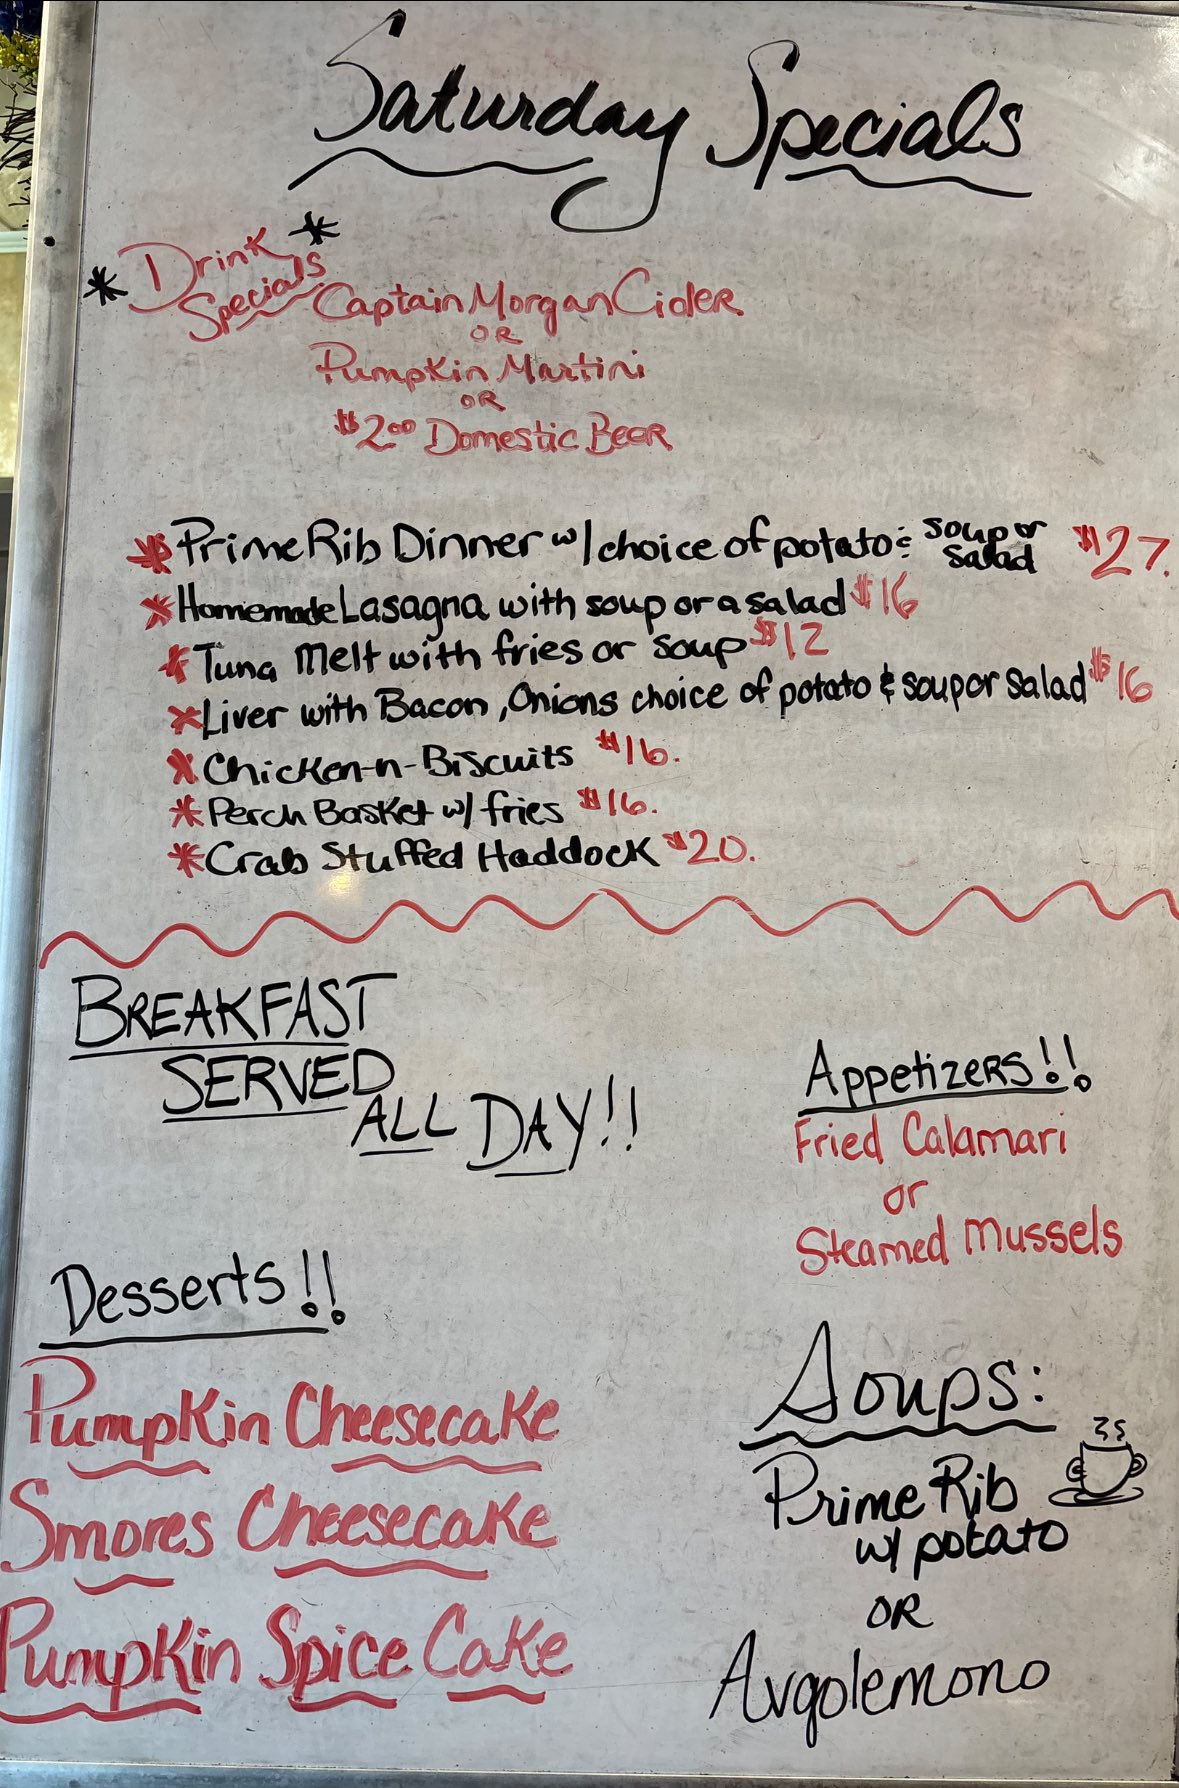 Saturday Specials
* Drink *
Specials
Captain Morgan Cider
OR
Pumpkin Martini
OR
$2.00 Domestic Beer
* Prime Rib Dinner w/ choice of potato & soup or salad $27.
* Homemade Lasagna with soup or a salad $16
* Tuna Melt with fries or soup $12
* Liver with Bacon, Onions choice of potato & soup or salad $16
* Chicken-n-Biscuits $16.
* Perch Basket w/ fries $16.
* Crab Stuffed Haddock $20.
BREAKFAST
SERVED
ALL DAY!!
Appetizers!!
Fried Calamari
or
Steamed Mussels
Desserts!!
Pumpkin Cheesecake
Smores Cheesecake
Pumpkin Spice Cake
Soups:
Prime Rib
w/ potato
OR
Avgolemono